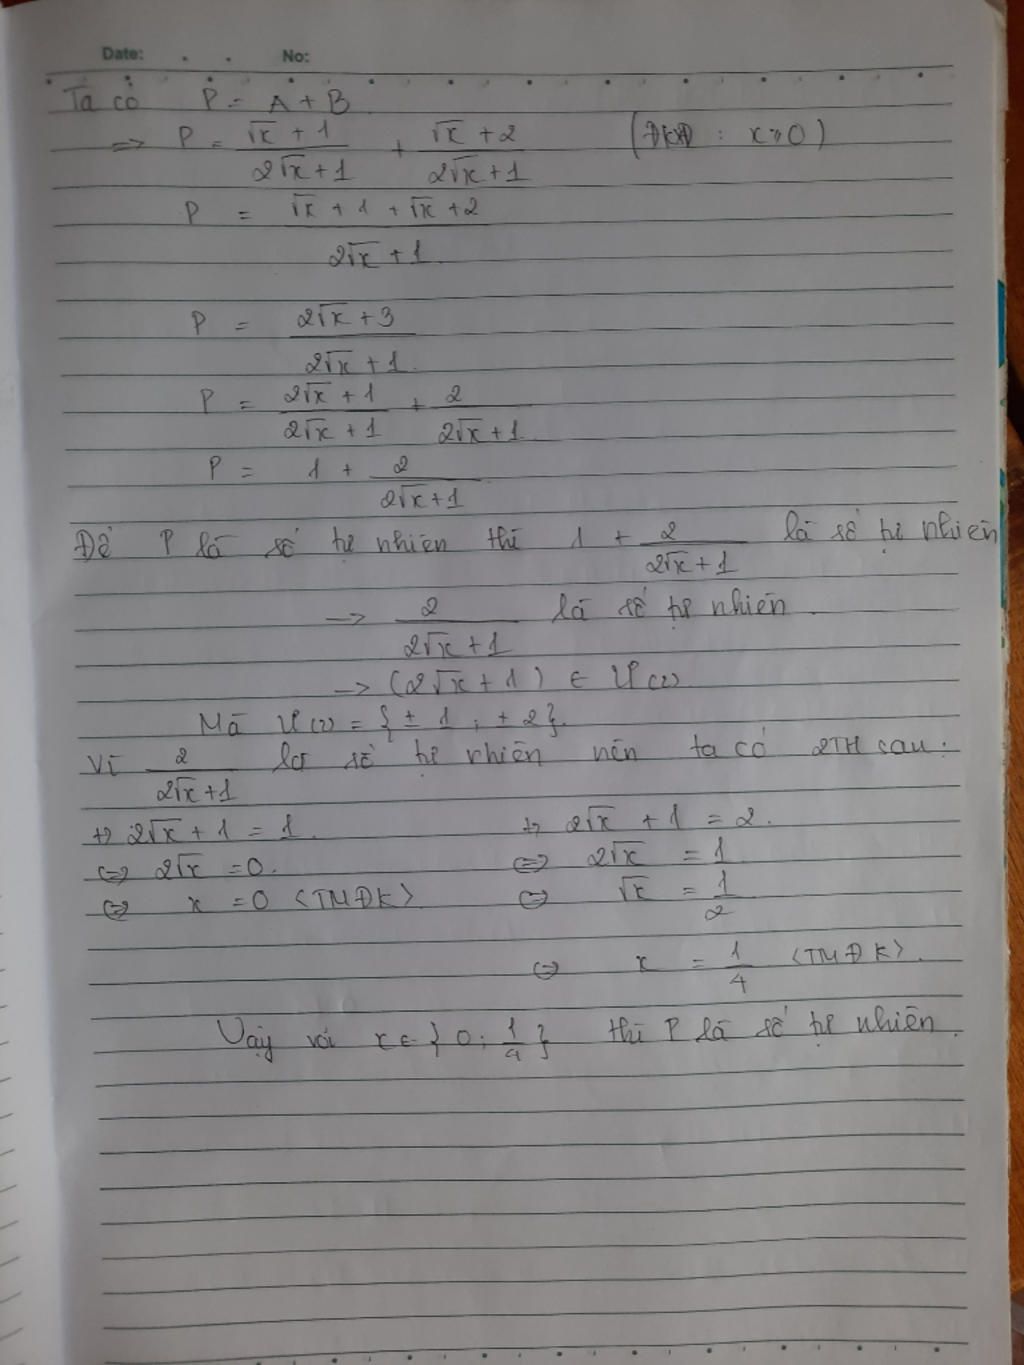 Date: . . No:
Ta có P = A + B
=> P = (√x + 1)/(2√x + 1) + (√x + 2)/(2√x + 1) (ĐKXĐ : x ≥ 0)
P = (√x + 1 + √x + 2)/(2√x + 1)
P = (2√x + 3)/(2√x + 1)
P = (2√x + 1)/(2√x + 1) + 2/(2√x + 1)
P = 1 + 2/(2√x + 1)
Để P là số tự nhiên thì 1 + 2/(2√x + 1) là số tự nhiên
-> 2/(2√x + 1) là số tự nhiên.
-> (2√x + 1) ∈ Ư(2)
Mà Ư(2) = {± 1 ; ± 2}.
Vì 2/(2√x + 1) là số tự nhiên nên ta có 2TH sau:
+, 2√x + 1 = 1. +, 2√x + 1 = 2.
<=> 2√x = 0. <=> 2√x = 1
<=> x = 0 <TMĐK> <=> √x = 1/2
<=> x = 1/4 <TMĐK>.
Vậy với x ∈ { 0 ; 1/4 } thì P là số tự nhiên.